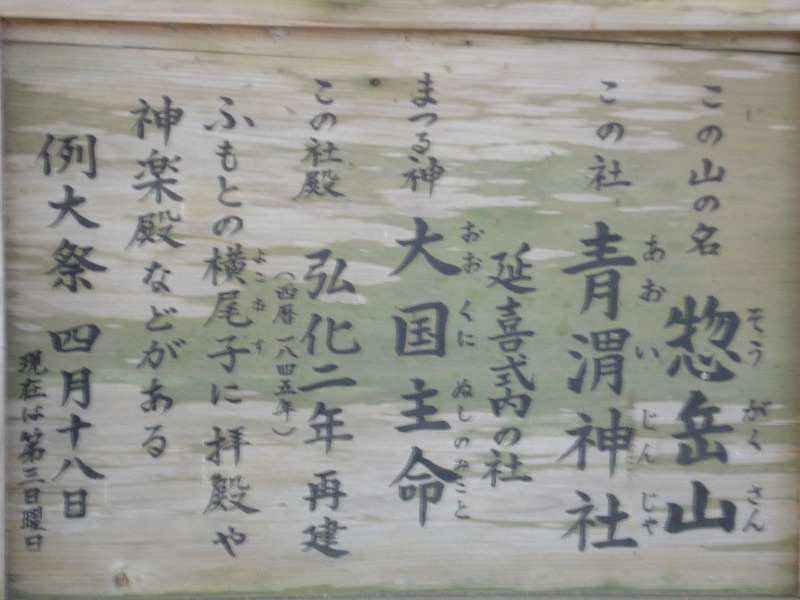 この山の名 惣岳山
そうがくさん
この社 青渭神社
あおいじんじゃ
延喜式内の社
まつる神 大国主命
おおくにぬしのみこと
この社殿 弘化二年 再建
(西暦 一八四五年)
ふもとの横尾子に拝殿や
よこおす
神楽殿などがある
例大祭 四月十八日
現在は第三日曜日